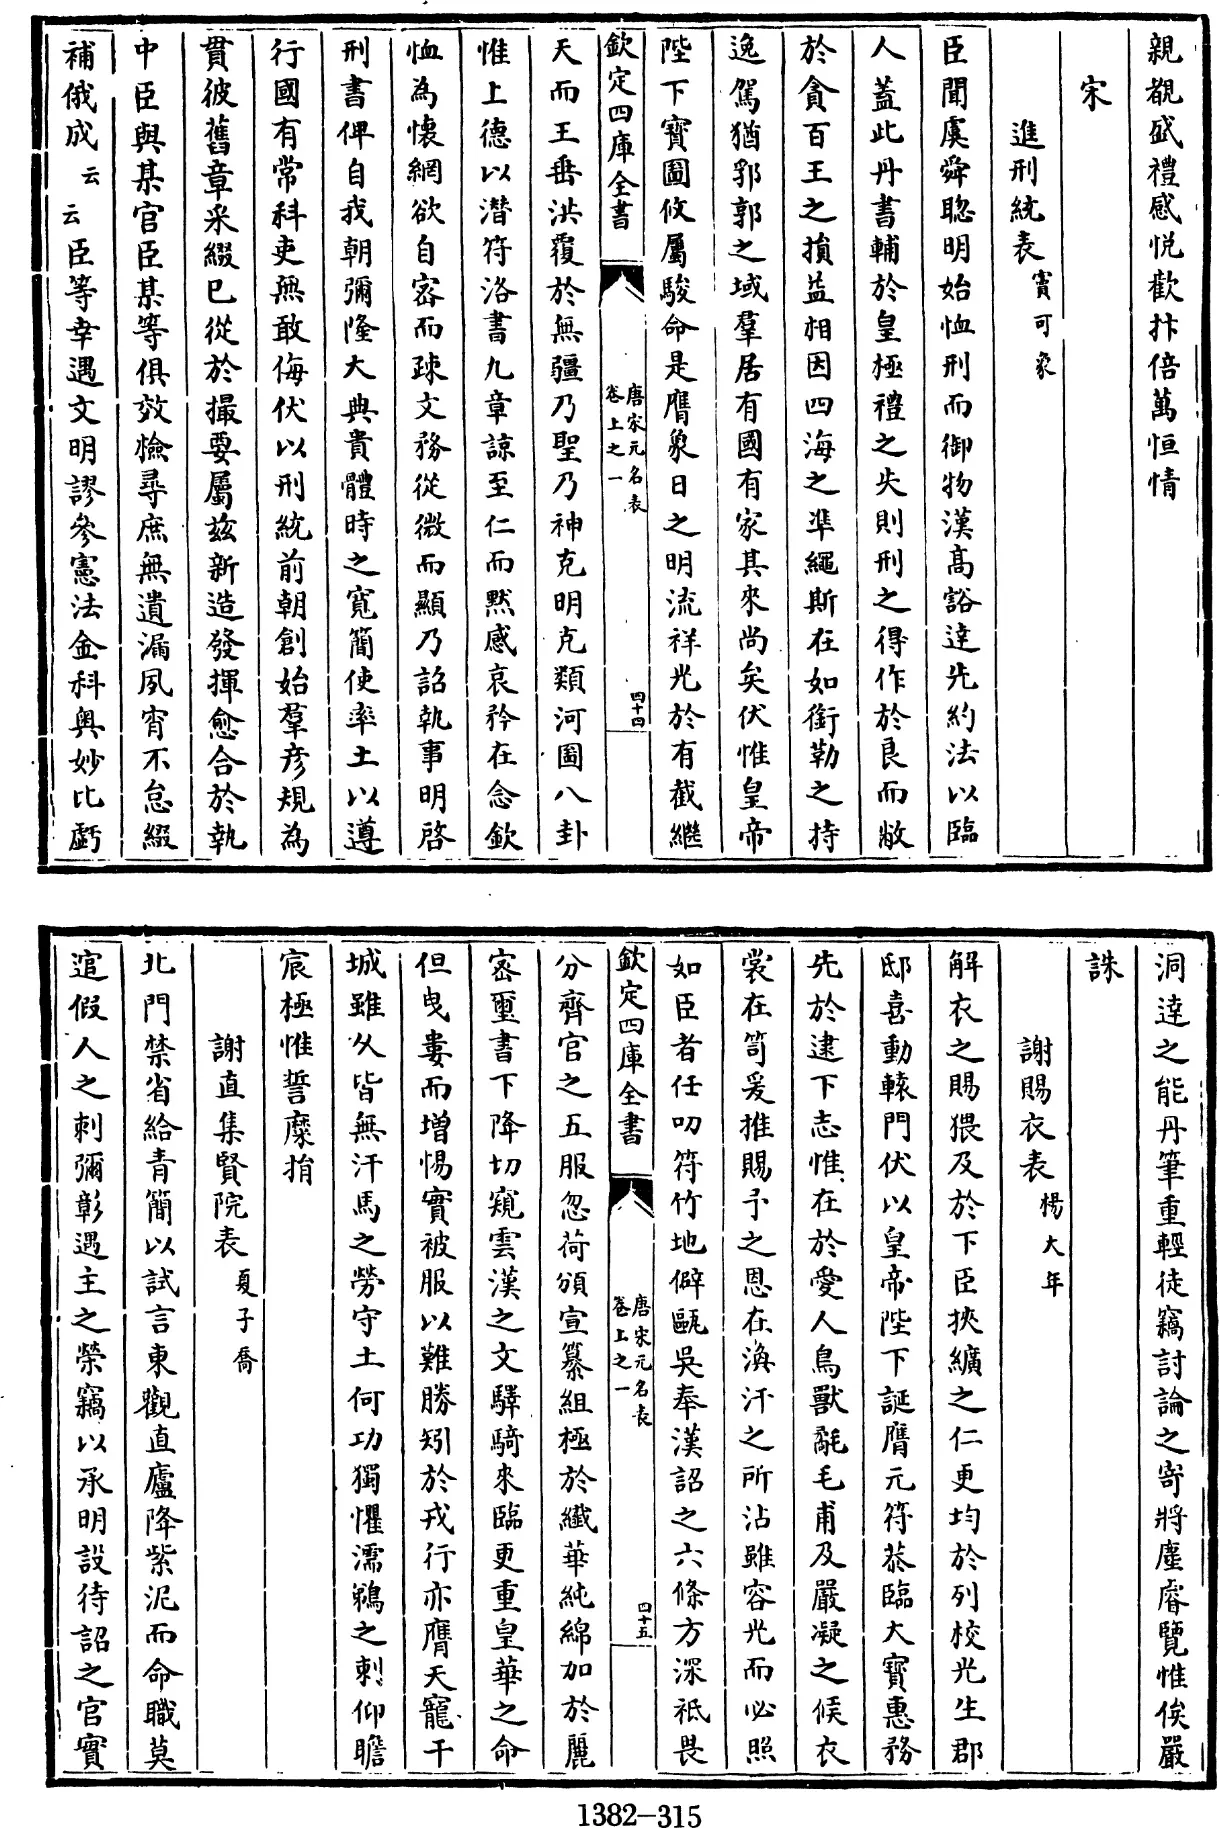 親覩盛禮感悦歡抃倍萬恒情
宋
進刑統表竇可象
臣聞虞舜聡明始恤刑而御物漢髙豁逹先約法以臨
人蓋此丹書輔於皇極禮之失則刑之得作於良而敝
於貪百王之損益相因四海之準繩斯在如銜勒之持
逸駕猶郛郭之域羣居有國有家其來尚矣伏惟皇帝
陛下寳圖攸屬駿命是膺象日之明流祥光於有截繼
欽定四庫全書
唐宋元名表
卷上之一
四十四
天而王垂洪覆於無疆乃聖乃神克明克類河圖八卦
惟上德以潜符洛書九章諒至仁而黙感哀矜在念欽
恤為懐網欲自宻而疎文務從微而顯乃詔執事明啓
刑書俾自我朝彌隆大典貴體時之寛簡使率土以遵
行國有常科吏無敢侮伏以刑統前朝創始羣彦規為
貫彼舊章采綴已從於撮要屬兹新造發揮愈合於執
中臣與某官臣某等俱效檢尋庶無遺漏夙宵不怠綴
補俄成云云臣等幸遇文明謬參憲法金科奥妙比虧
洞逹之能丹筆重輕徒竊討論之寄將塵睿覽惟俟嚴
誅
謝賜衣表楊大年
解衣之賜猥及於下臣挾纊之仁更均於列校光生郡
邸喜動轅門伏以皇帝陛下誕膺元符恭臨大寳惠務
先於逮下志惟在於愛人鳥獸氄毛甫及嚴凝之候衣
裳在笥爰推賜予之恩在渙汗之所沾雖容光而必照
如臣者任叨符竹地僻甌吳奉漢詔之六條方深祇畏
欽定四庫全書
唐宋元名表
卷上之一
四十五
分齊官之五服忽荷頒宣纂組極於纎華純綿加於麗
宻璽書下降切窺雲漢之文驛騎來臨更重皇華之命
但曵婁而增惕實被服以難勝矧於戎行亦膺天寵干
城雖久皆無汗馬之勞守土何功獨懼濡鵜之刺仰瞻
宸極惟誓糜捐
謝直集賢院表夏子喬
北門禁省給青簡以試言東觀直廬降紫泥而命職莫
逭假人之刺彌彰遇主之榮竊以承明設待詔之官實
1382-315